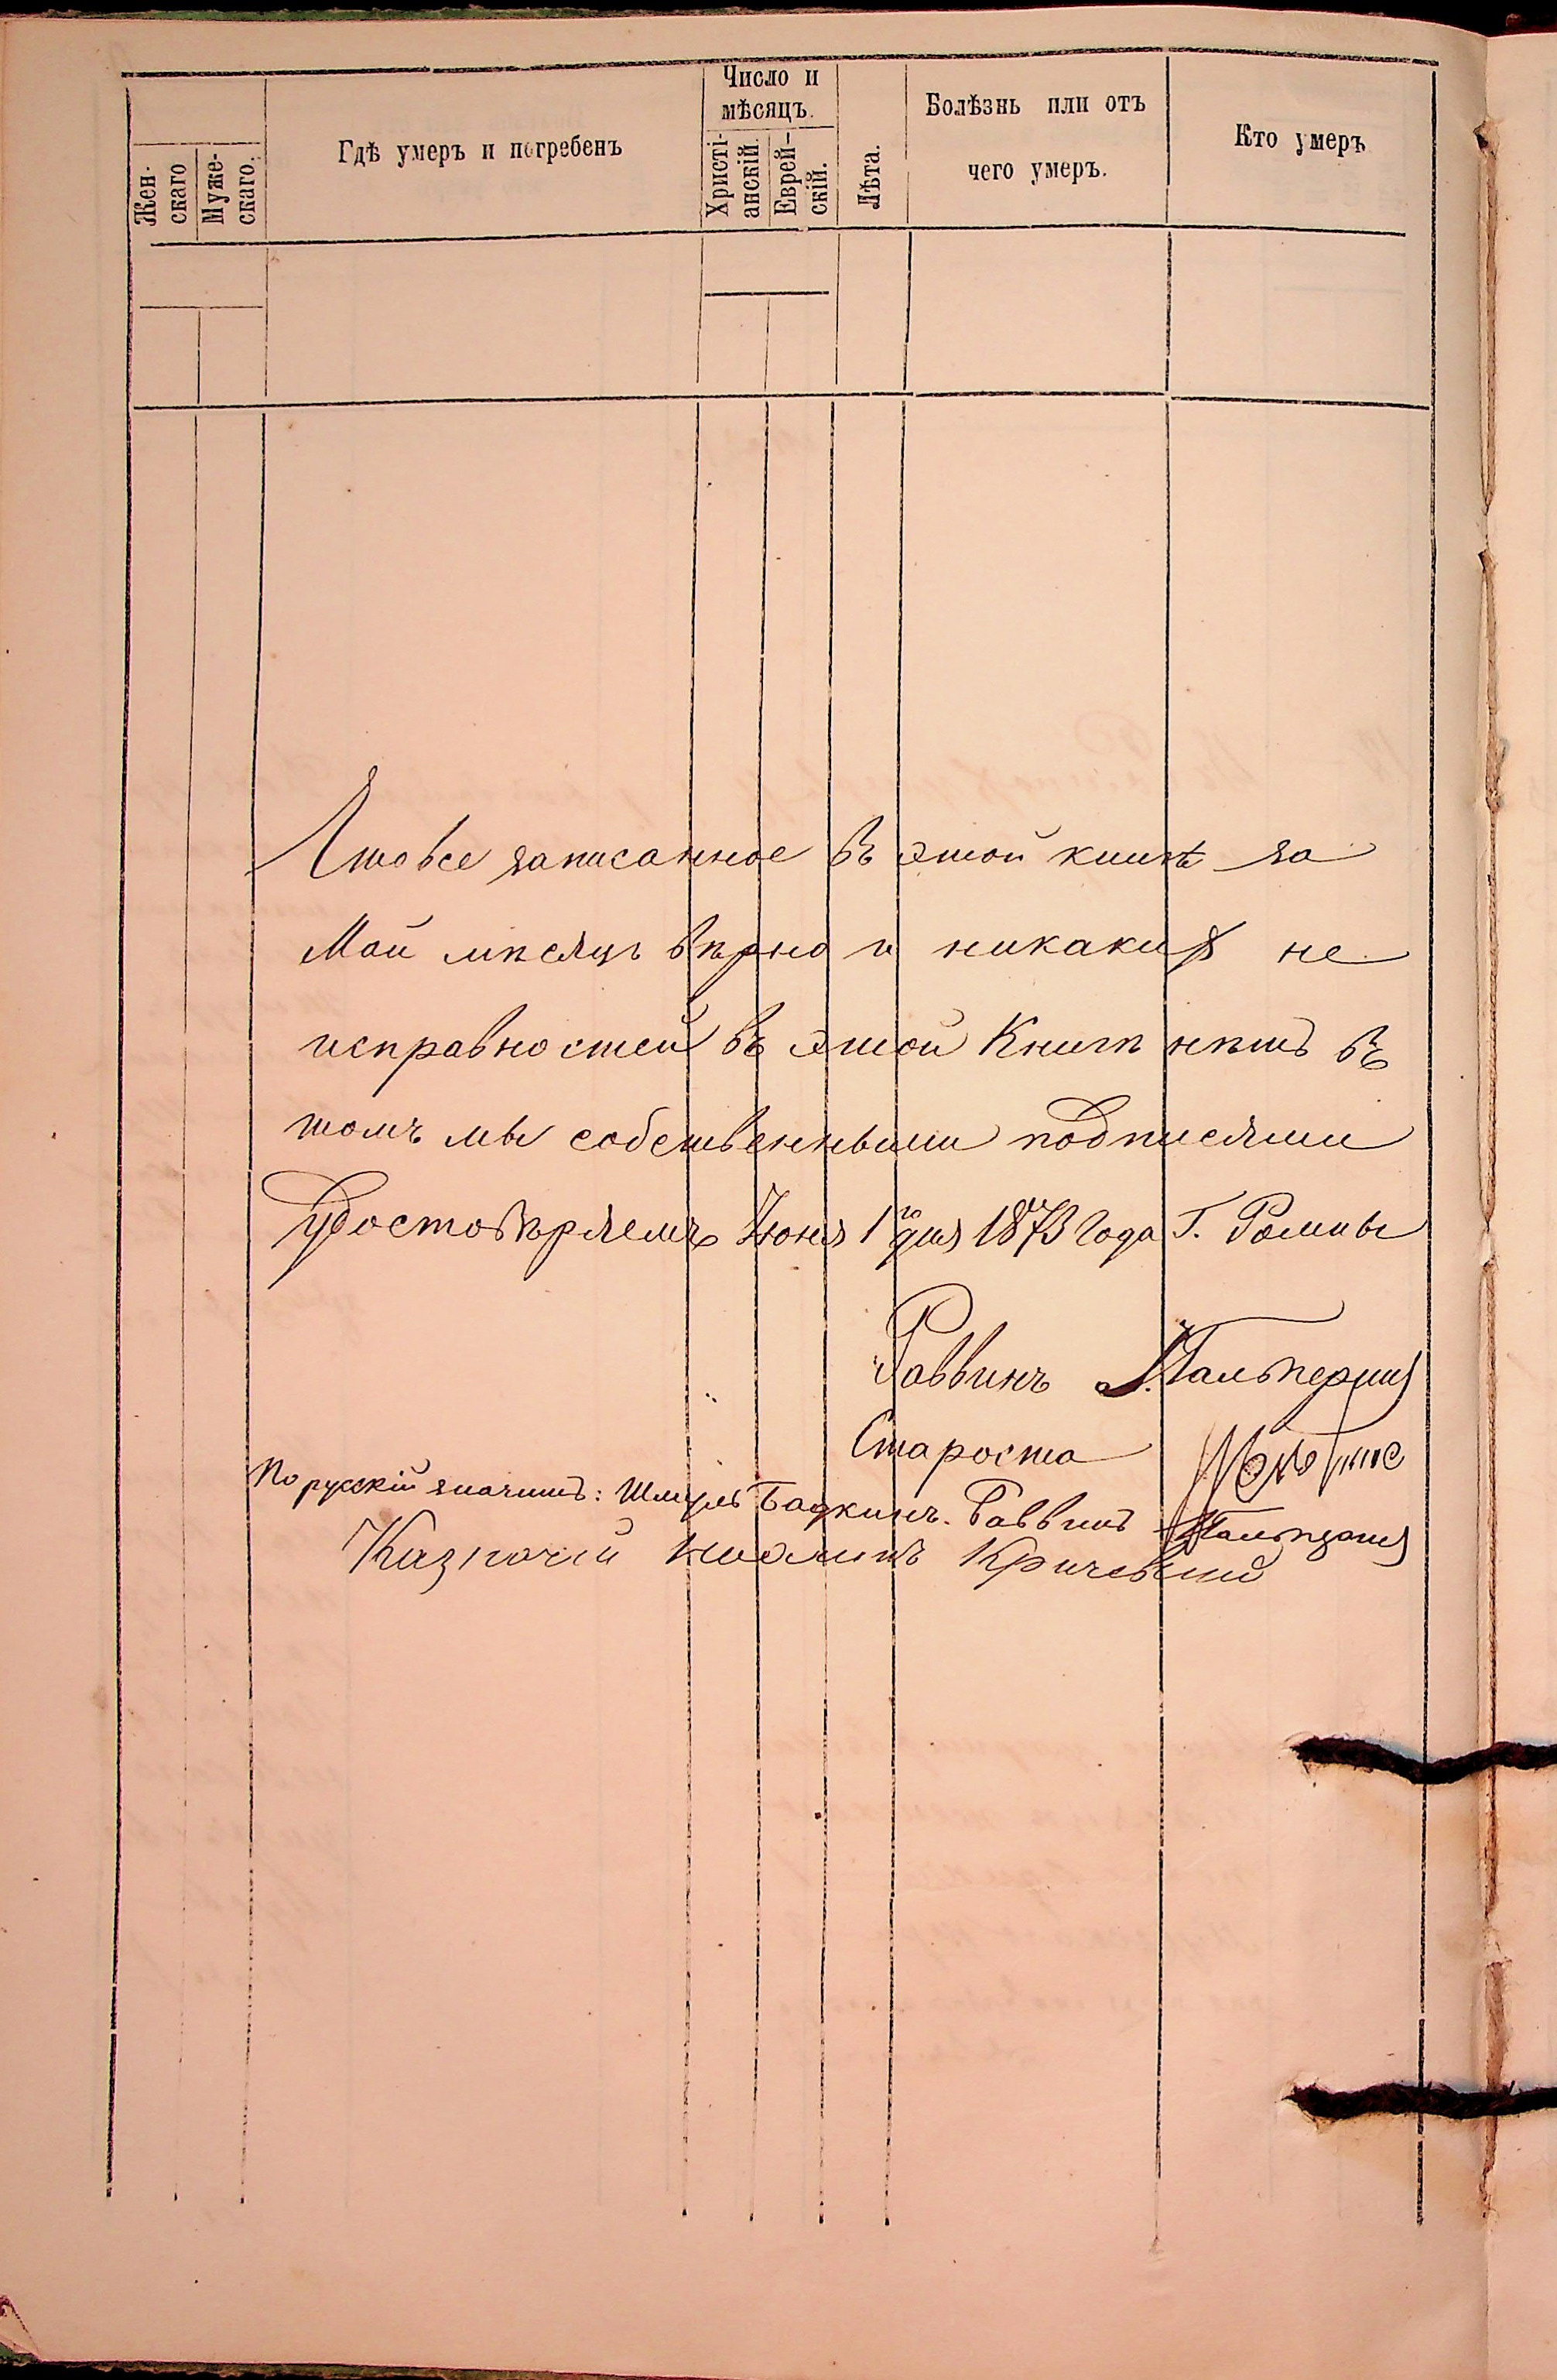 Жен-
скаго
Муже-
скаго.
Гдѣ умеръ и погребенъ
Число и
мѣсяцъ.
Христі-
анскій.
Еврей-
скій.
Лѣта.
Болѣзнь или отъ
чего умеръ.
Кто умеръ
Что все записанное въ этой книгѣ за
Май мѣсяцъ вѣрно и никакихъ не
исправностей въ этой Книгѣ нѣтъ въ
томъ мы собственными подписями
удостовѣряемъ Іюня 1го дня 1873 года Г. Ромны
Раввинъ Гальперинъ
Староста
По русскій значитъ: Шмуль Бадкинъ. Раввинъ Гальперинъ
Казначей Кричевскій